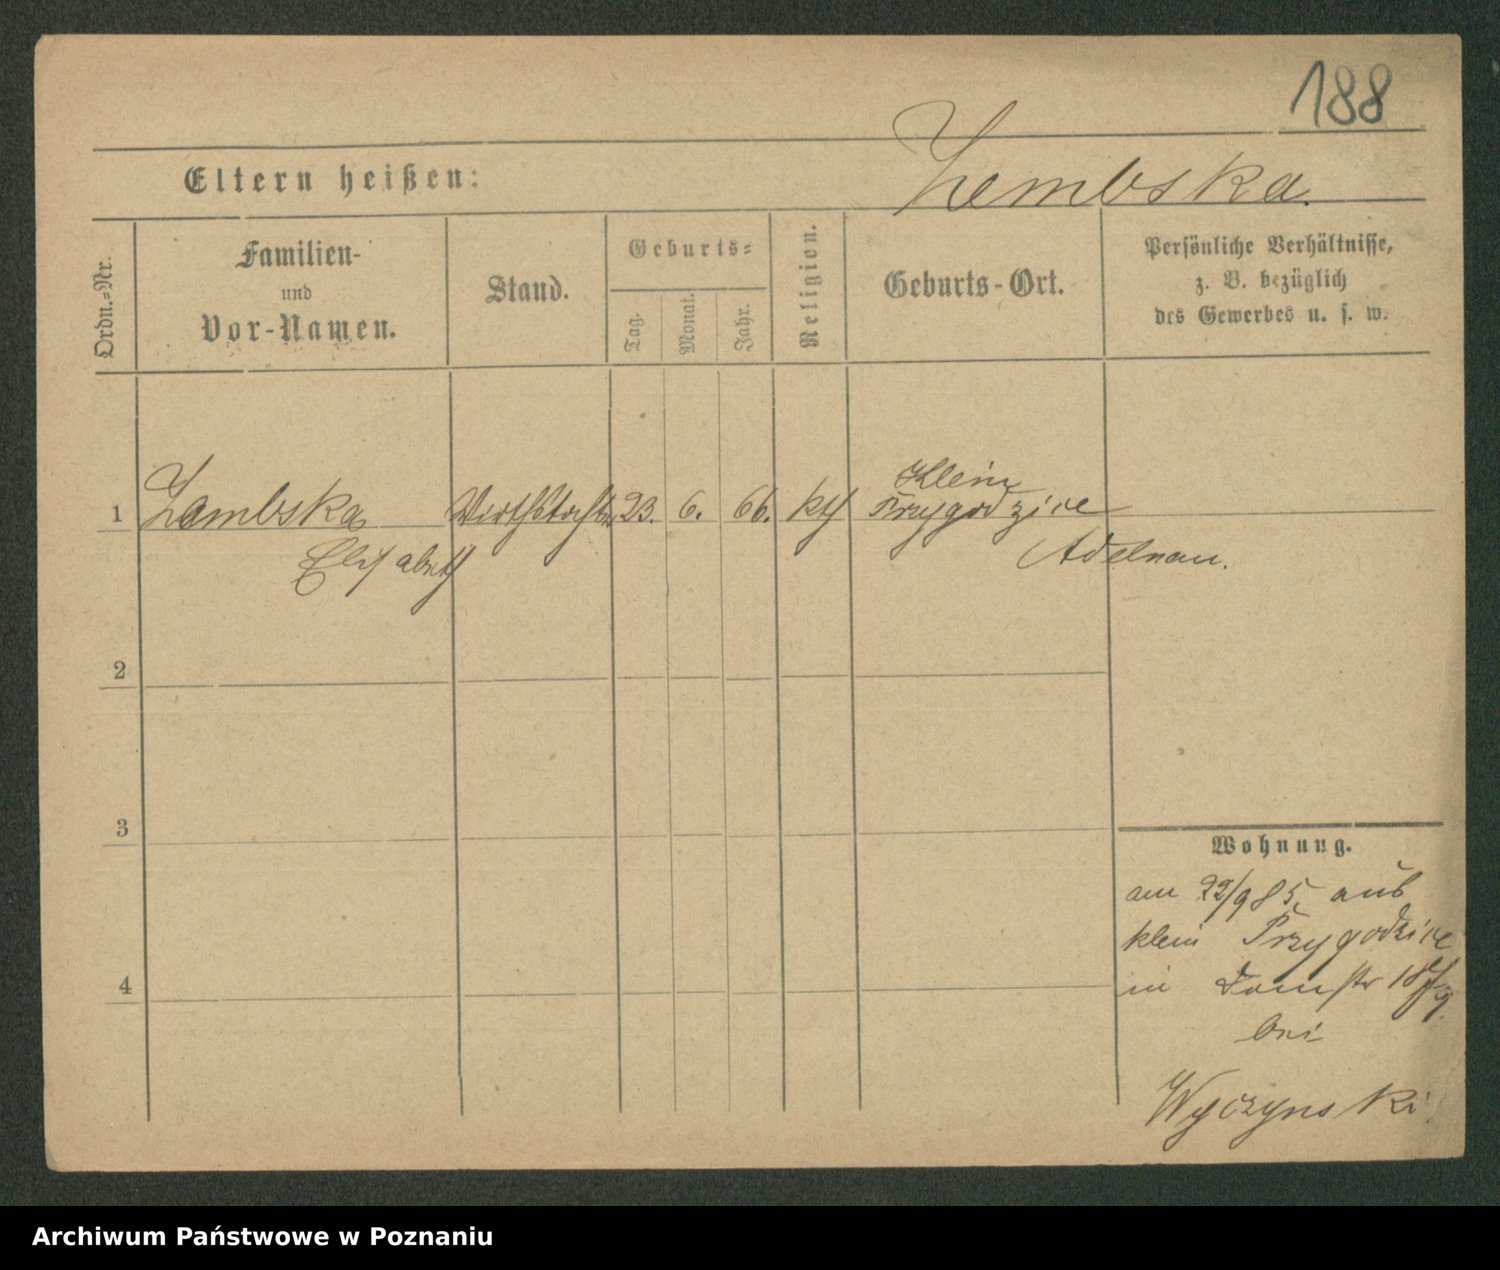 188
Zembska.
Eltern heißen:
Ordn.=Nr.
Familien-
und
Vor-Namen.
Stand.
Geburts=
Tag.
Monat.
Jahr.
Religion.
Geburts-Ort.
Persönliche Verhältnisse,
z. B. bezüglich
des Gewerbes u. s. w.
Klein
1 Zambska Wirthstochter 23. 6. 66. kth Przygodzice
Elisabeth Adelnau.
2
3
4
Wohnung.
am 22/9 85, aus
klein Przygodzice
in Domstr
bei
Wyczynski
Archiwum Państwowe w Poznaniu